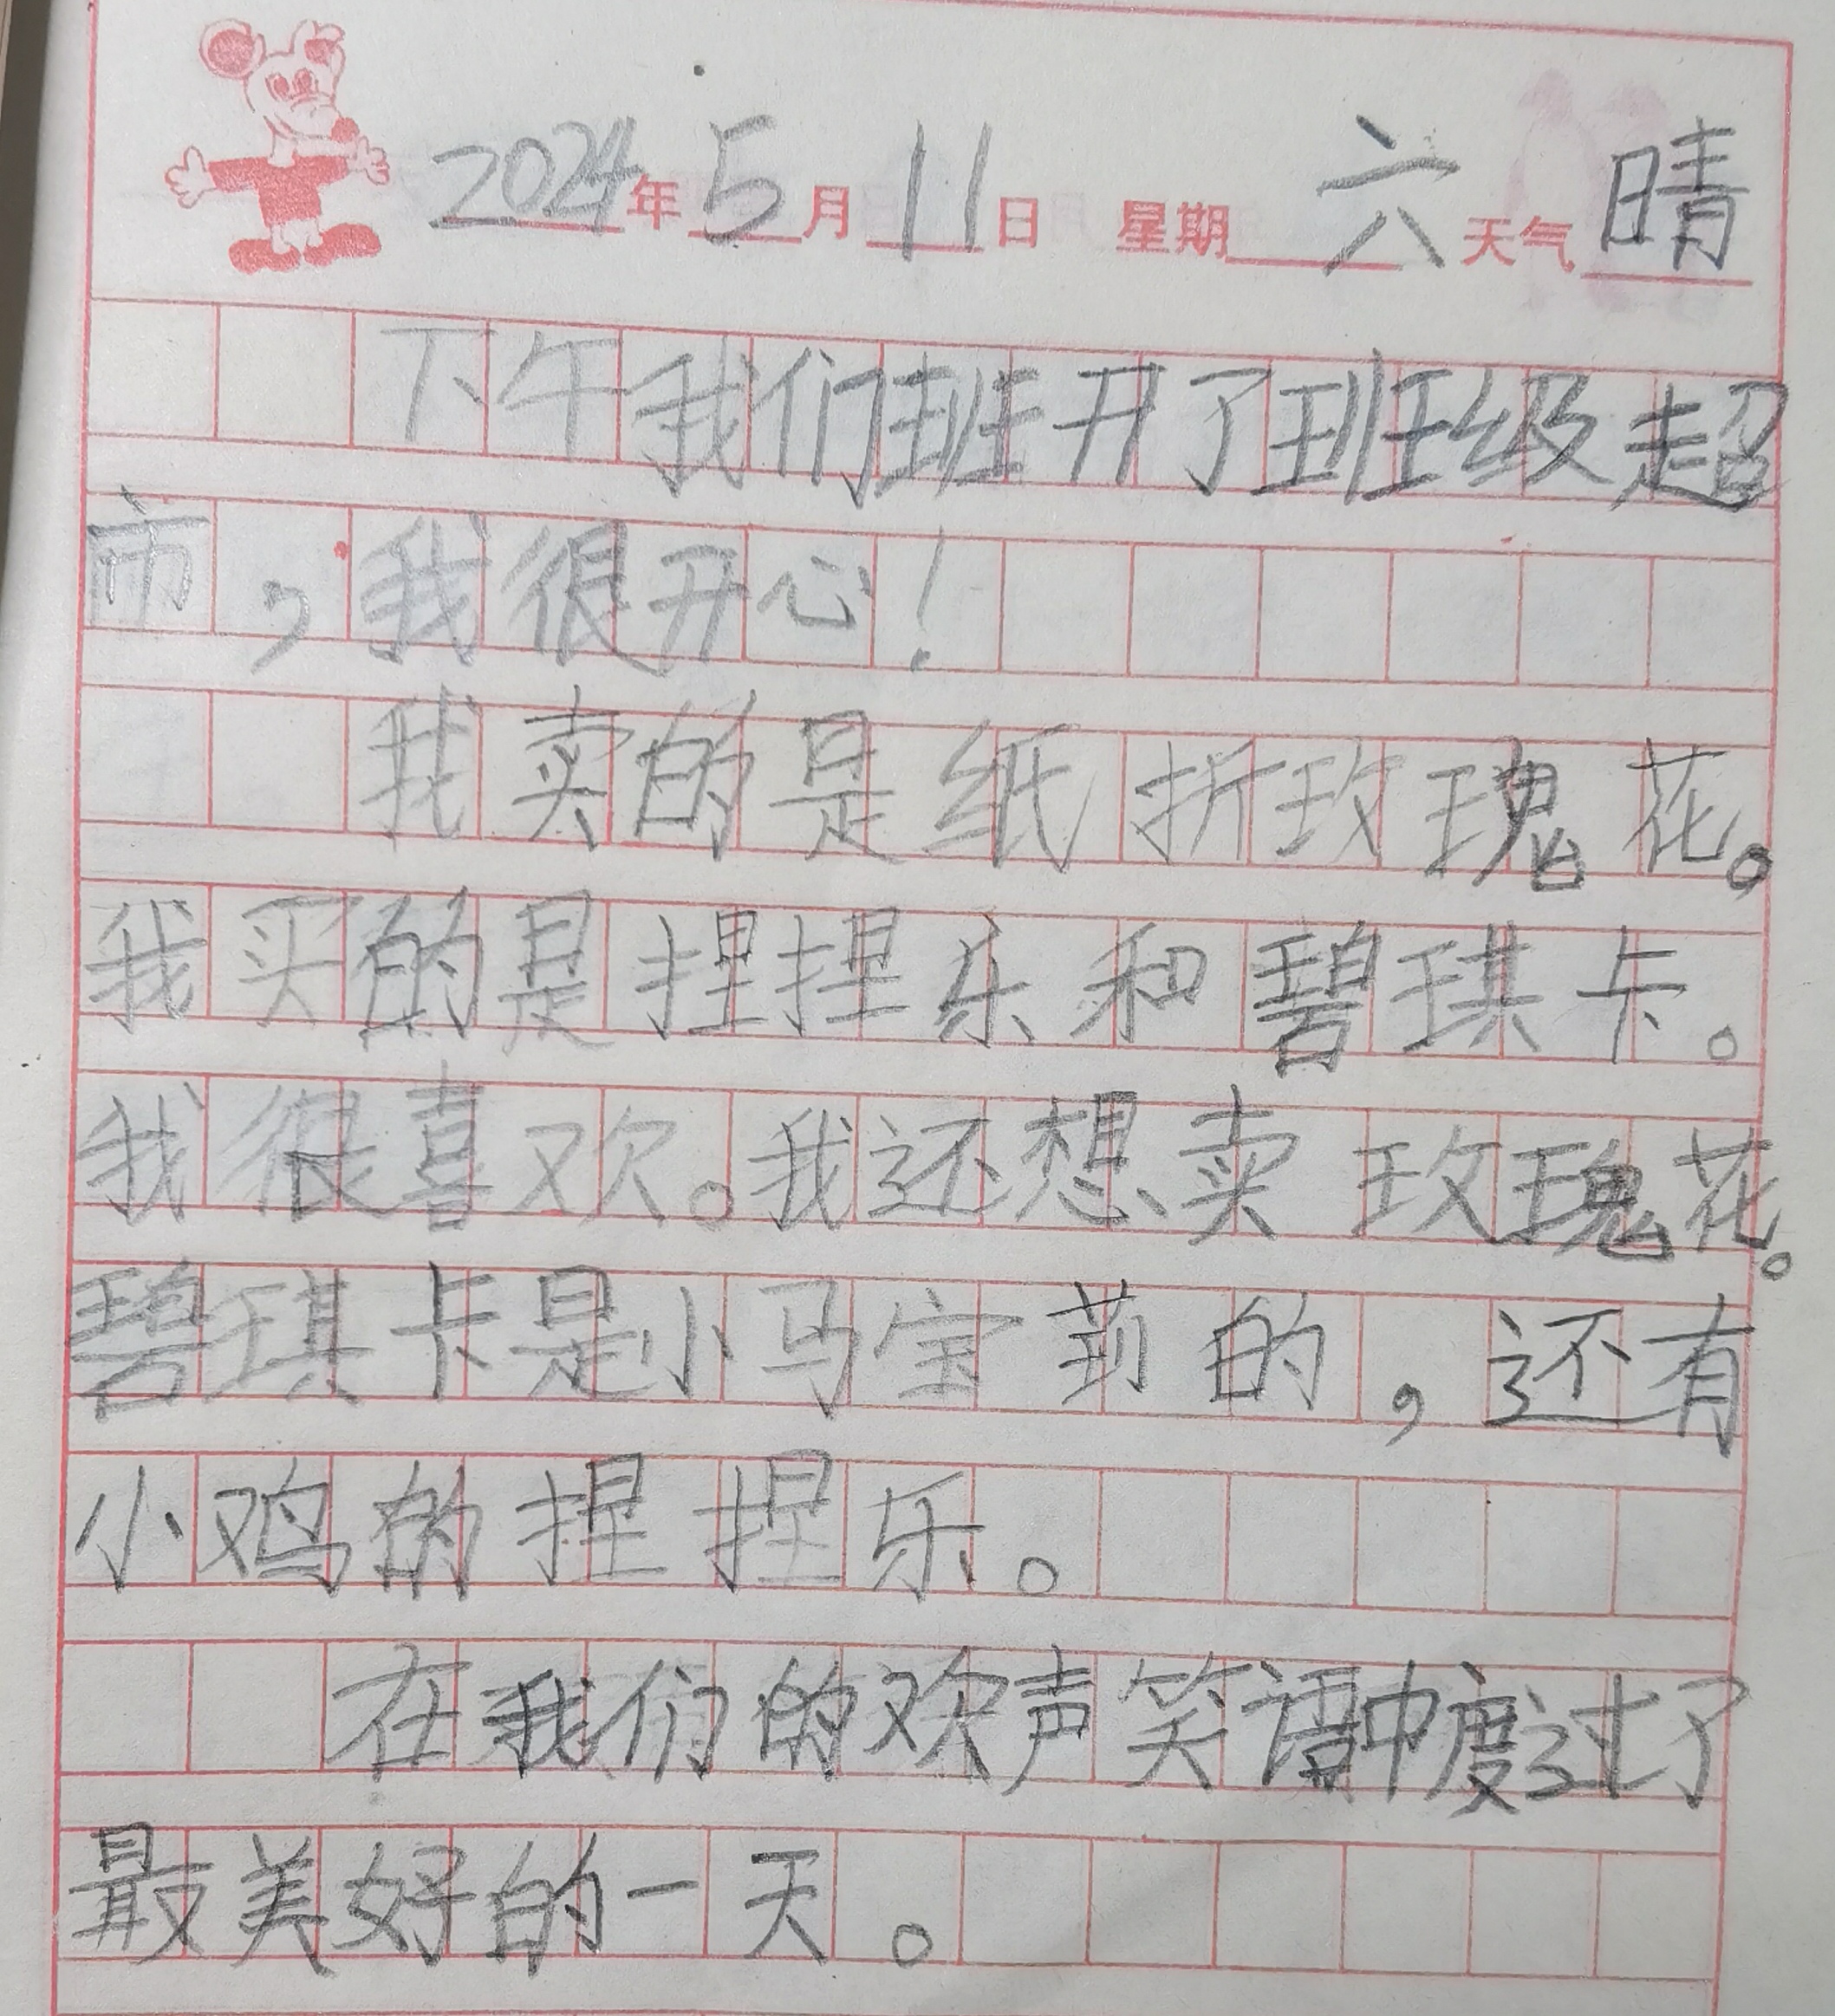 2024年5月11日 星期六 天气晴
下午我们班开了班级超
市，我很开心！
我卖的是纸折玫瑰花。
我买的是捏捏乐和碧琪卡。
我很喜欢。我还想卖玫瑰花。
碧琪卡是小马宝莉的，还有
小鸡的捏捏乐。
在我们的欢声笑语中度过了
最美好的一天。